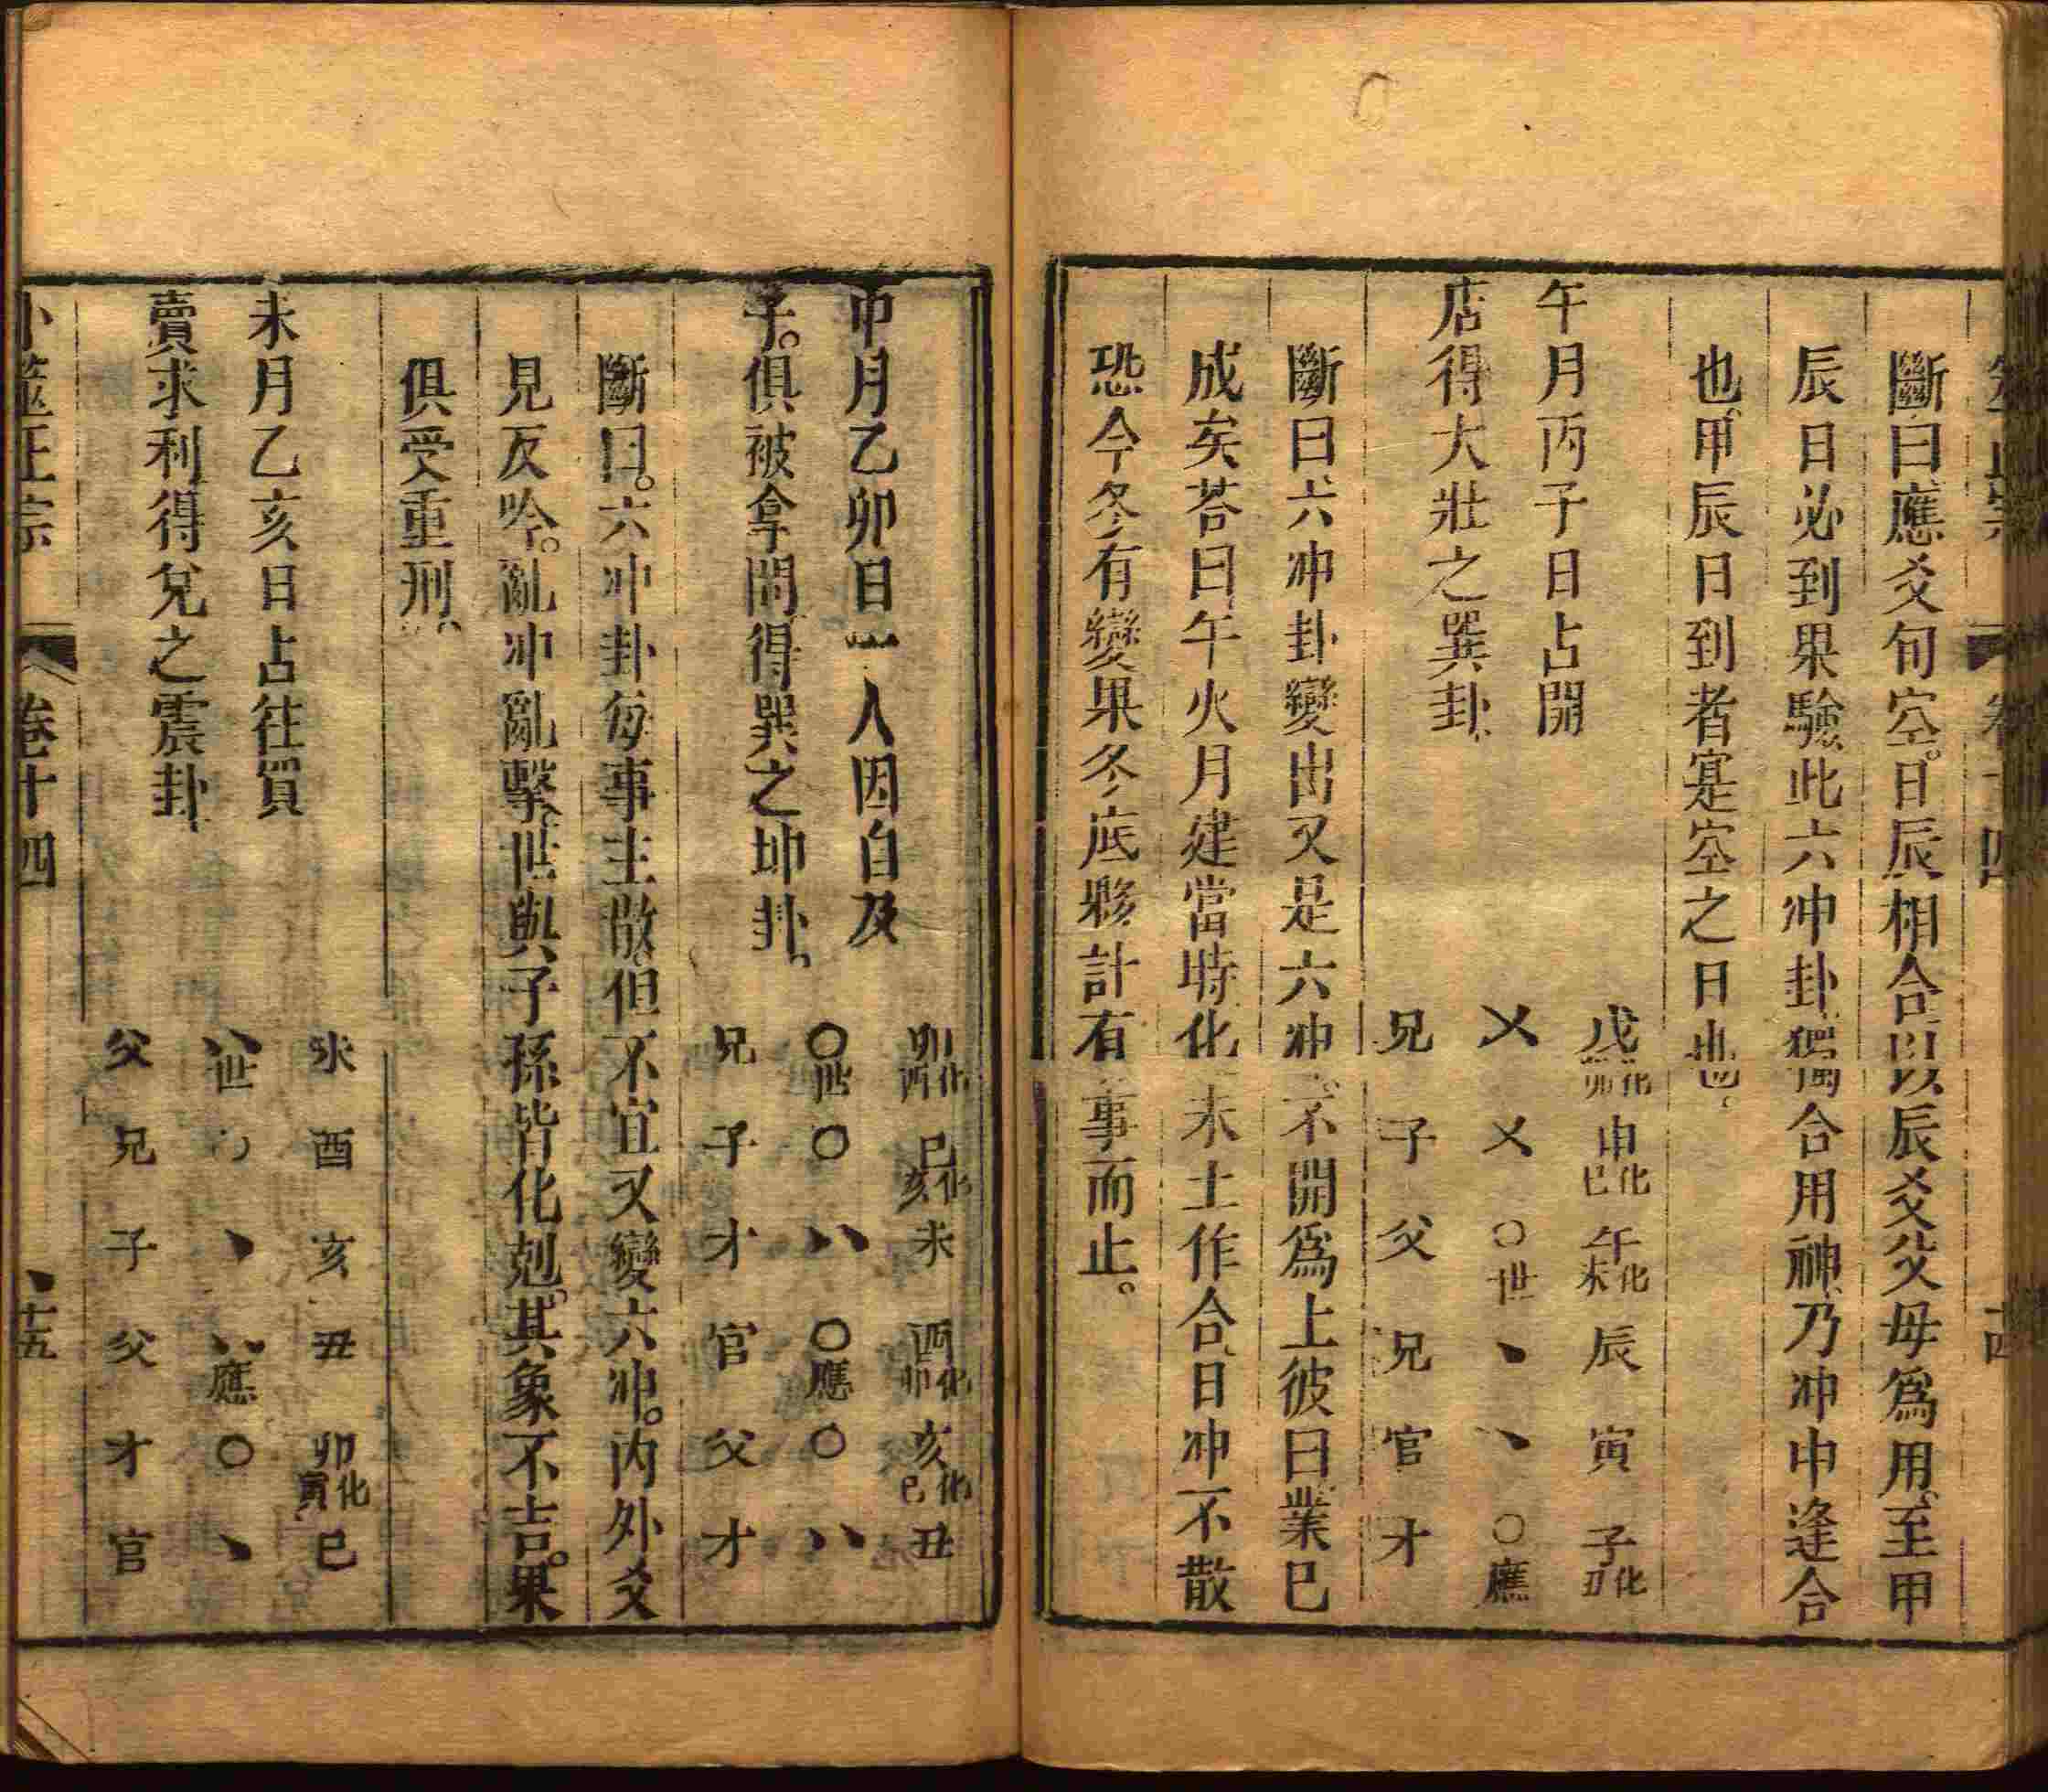 斷曰、應爻旬空。日辰相合、以辰爻父母爲用、至甲
辰日必到、果驗、此六冲卦、獨合用神、乃冲中逢合
也、甲辰日到者、寔空之日也。
午月丙子日占開
店得大壯之巽卦、
戌化卯 申化巳 午化未 辰 寅 子化丑
乂 乂 〇世 丶 丶 〇應
兄 子 父 兄 官 才
斷曰、六冲卦變出又是六冲、不開爲上、彼曰、業已
成矣、荅曰、午火月建當時、化未土作合、日冲不散
恐今冬有變、果冬底夥計有事而止。
申月乙卯日一人因自及
子。俱被拿問、得巽之坤卦、
卯化酉 巳化亥 未 酉化卯 亥化巳 丑
〇世 〇 八 〇應 〇 八
兄 子 才 官 父 才
斷曰。六冲卦每事主散。但不宜又變六冲。内外爻
見反吟。亂冲亂擊。世與子孫皆化剋。其象不吉。果
俱受重刑。
未月乙亥日占往買
賣求利得兌之震卦、
未 酉 亥 丑 卯化寅 巳
八世 丶 八應 〇 丶
父 兄 子 父 才 官
卜筮正宗 卷十四 十五